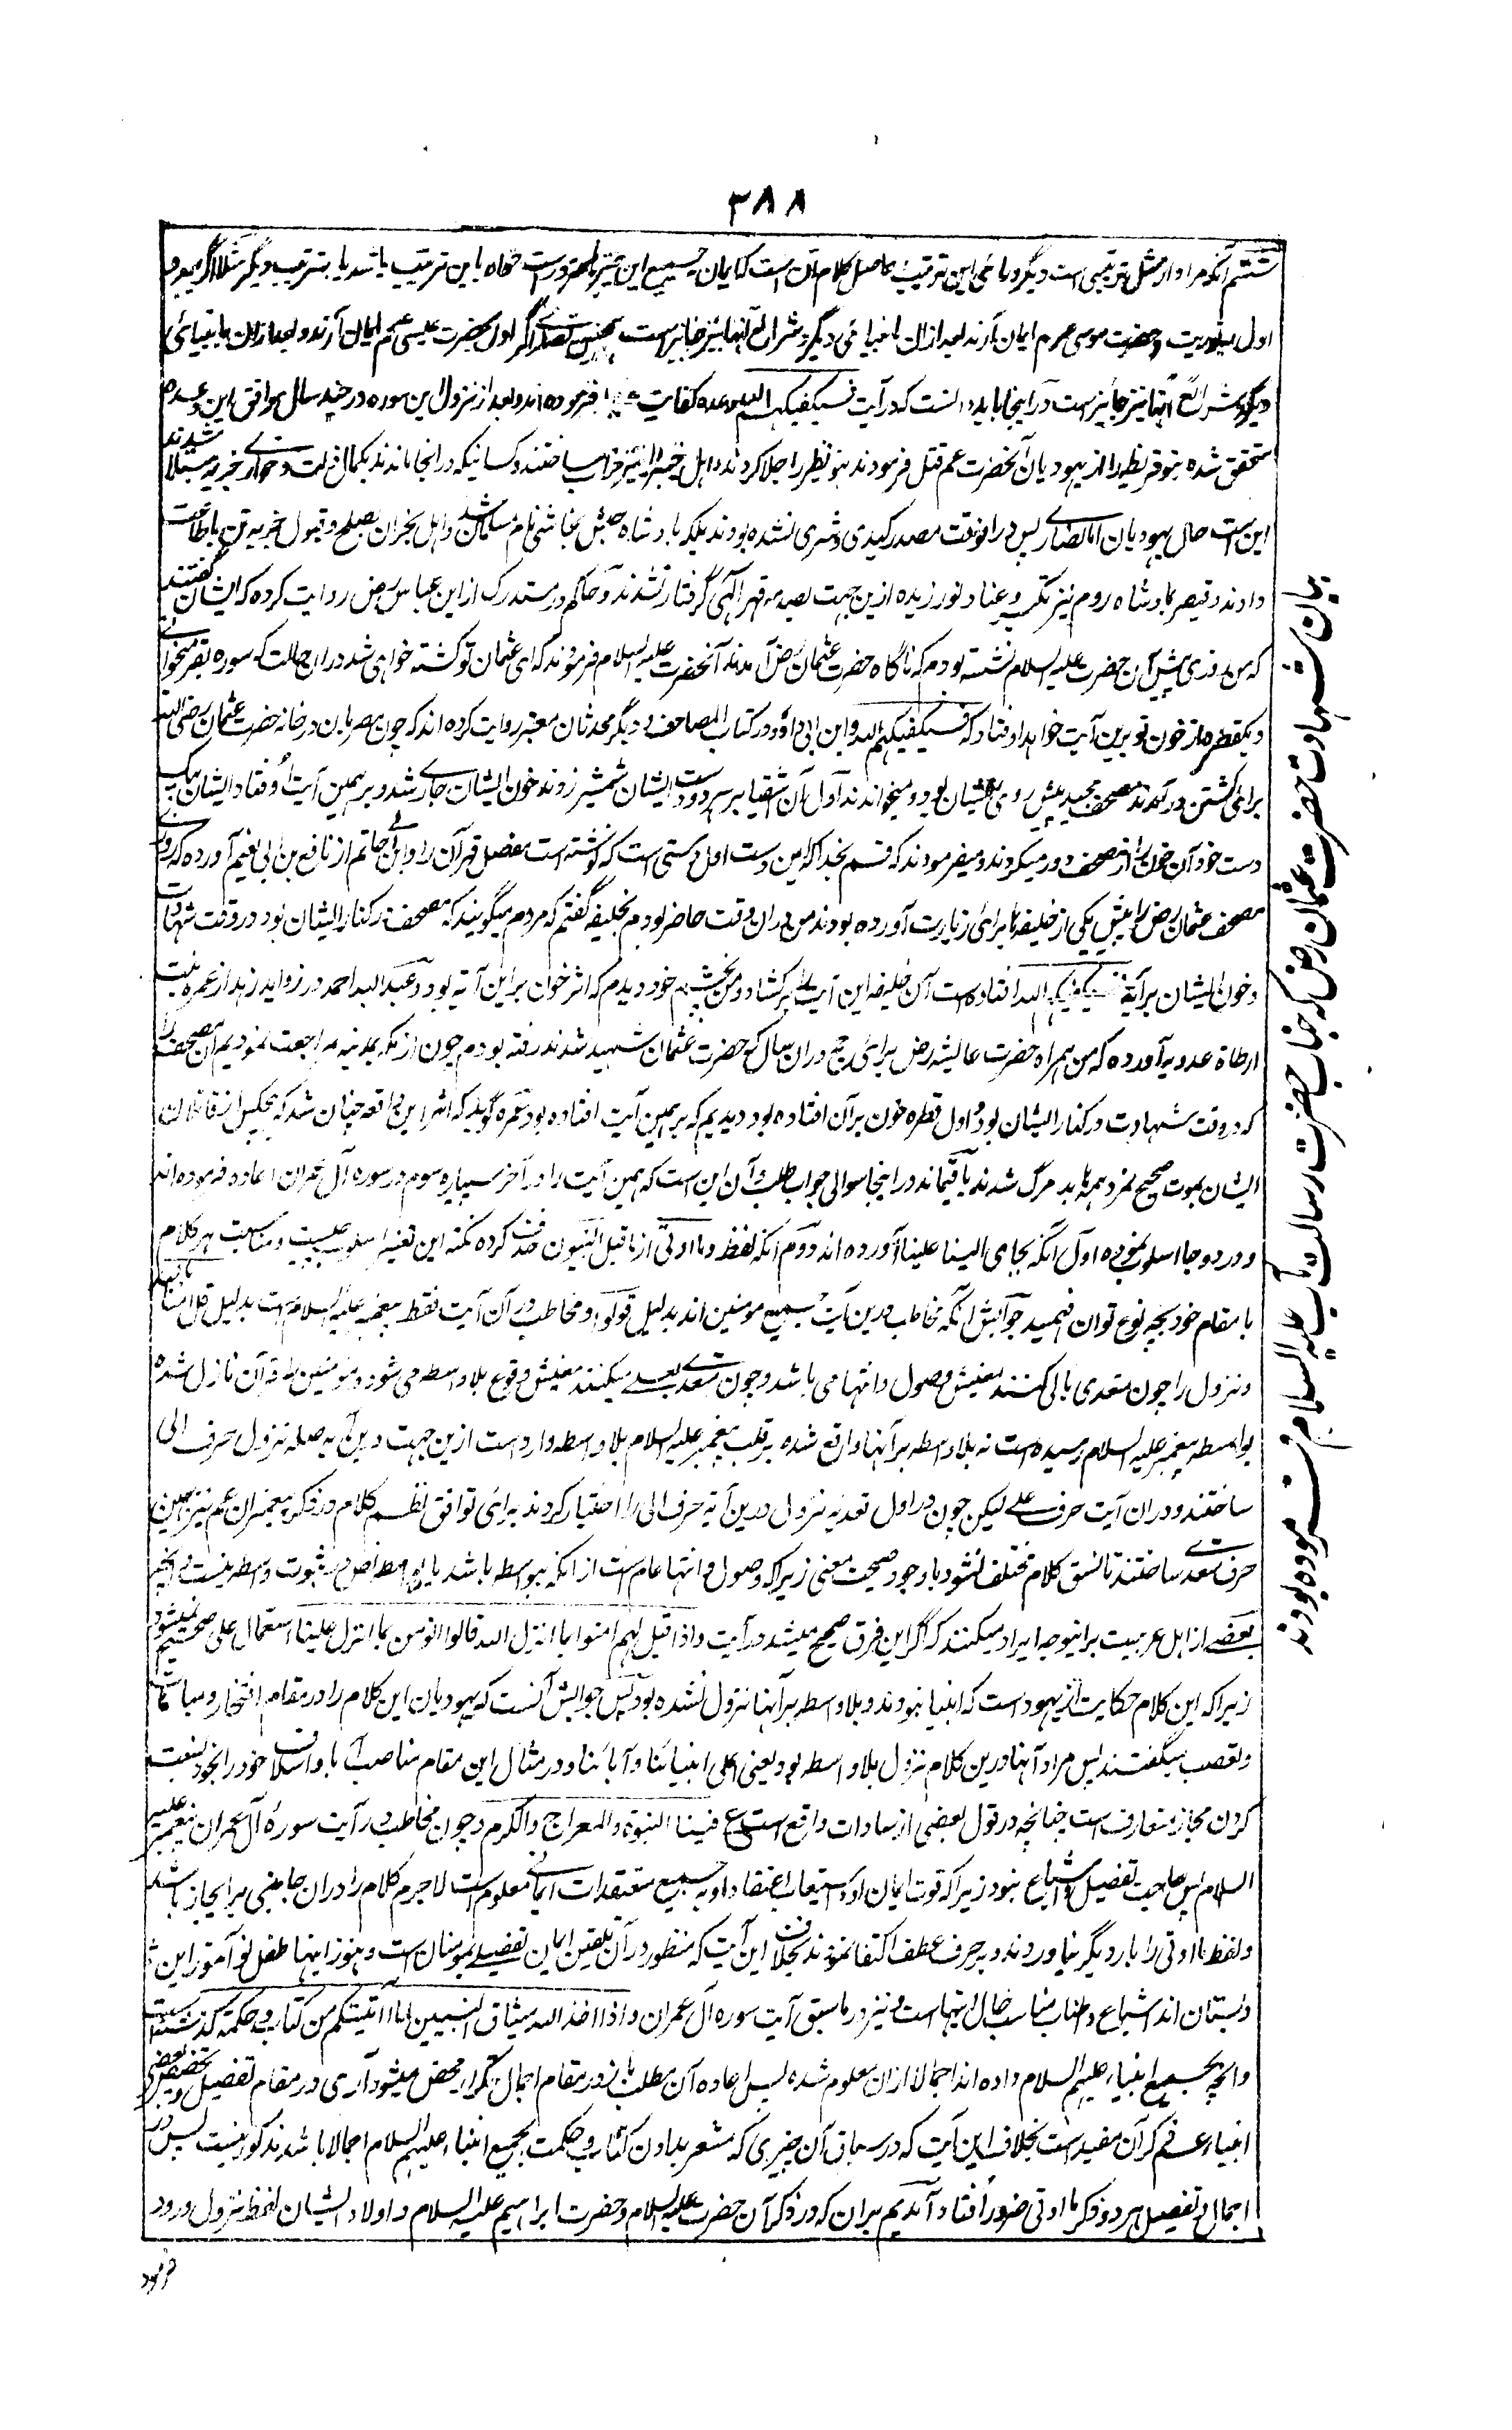 ۳۸۸
ششم آنکه مراد از مثل ترتیبی است دیگر و رای این ترتیب حاصل کلام آن است که ایمان جمیع این چیزها ضرور است خواه باین ترتیب باشد یا بترتیب دیگر مثلا اگر یهود
اول بتوریت و حضرت موسی عم ایمان آرند بعد ازان با نبیای دیگر و شرائع آنها نیز جائز است همچنین نصاری اگر اول بحضرت عیسی عم ایمان آرند و بعد ازان با نبیای
دیگر و شرائع آنها نیز جائز است و در اینجا باید دانست که در آیت فسیکفیکهم الله وعده کفایت فرموده اند و بعد از نزول این سوره در چند سال موافق این وعده
متحقق شده بنو قریظه را از یهودیان آنحضرت عم قتل فرمودند بنو نظیر را جلا کردند و اهل خیبر را نیز خراب ساختند و کسانیکه در انجا ماندند بکمال ذلت و خواری جزیه مبتلا شدند
این است حال یهودیان اما نصاری پس در انوقت مصدر کیدی و شری نشده بودند بلکه بادشاه حبش نجاشی نام مسلمان شد و اهل نجران بصلح و قبول جزیه تن باطاعت
دادند و قیصر بادشاه روم نیز تکبر و عناد نورزیده ازین جهت بصدمه قهر الهی گرفتار نشدند و حاکم در مستدرک از ابن عباس رض روایت کرده که ایشان گفتند
که من روزی پیش آن حضرت علیه السلام نشسته بودم که ناگاه حضرت عثمان رض آمدند آنحضرت علیه السلام فرمودند که ای عثمان تو کشته خواهی شد دران حالت که سوره بقر میخوانی
و یکقطره از خون تو برین آیت خواهد افتاد که فسیکفیکهم الله و ابن ابی داؤد در کتاب المصاحف و دیگر محدثان معتبر روایت کرده اند که چون مصریان در خانه حضرت عثمان رضی الله
برای کشتن در آمدند مصحف مجید پیش روی ایشان بود و میخواندند اول آن اشقیا بر سر دو دست ایشان شمشیر زدند خون ایشان جاری شد و بر همین آیت افتاد ایشان بیک
دست خود آن خون را از مصحف دور میکردند و میفرمودند که قسم بخدا که این دست اول دستی است که نوشته است مفصل قرآن را و ابن ابی حاتم از نافع بن ابی نعیم آورده که روزی
مصحف عثمان رض را پیش یکی از خلیفه ها برای زیارت آورده بودند من دران وقت حاضر بودم بخلیفه گفتم که مردم میگویند که مصحف در کنار ایشان بود در وقت شهادت
و خون ایشان بر آیة فسیکفیکهم الله افتاده است آن خلیفه این آیت را بر کشاد و من بچشم خود دیدم که اثر خون بر این آیه بود و عبد الله احمد در زواید زهد از عمره بنت
ارطاة عدویه آورده که من همراه حضرت عائشه رض برای حج دران سال که حضرت عثمان شهید شدند رفته بودم چون از مکه بمدینه مراجعت نمودیم آن مصحف را
که در وقت شهادت در کنار ایشان بود و اول قطره خون بر آن افتاده بود دیدیم که بر همین آیت افتاده بود عمره گوید که اثر این واقعه چنان شد که هیچکس از قاتلان
ایشان بموت صحیح نمرد همه ها بد مرگ شدند باقیماند در اینجا سوالی جواب طلب و آن این است که همین آیت را در آخر سیپاره سوم در سوره آل عمران اعاده فرموده اند
و در دو جا اسلوب نموده اول آنکه بجای الینا علینا آورده اند دوم آنکه لفظ و ما اوتی از ما قبل النبیون حذف کرده نکته این تغیر اسلوب چیست و مناسبت هر کلام
با مقام خود بچه نوع توان فهمید جوابش آنکه مخاطب درین آیت جمیع مومنین اند بدلیل قولوا و مخاطب در آن آیت فقط پیغمبر علیه السلام است بدلیل قل آمنا بالله
و نزول را چون متعدی بالی کنند معنیش وصول و انتها می باشد و چون متعدی بعلی میکنند معنیش وقوع بلا واسطه می شود و مومنین را قرآن نازل شده
بواسطه پیغمبر علیه السلام رسیده است نه بلا واسطه بر آنها واقع شده بر قلب پیغمبر علیه السلام بلا واسطه وارد است ازین جهت درین آیه صله نزول حرف الی
ساختند و دران آیت حرف علی لیکن چون در اول تعدیه نزول درین آیه حرف الی را اختیار کردند برای توافق نظم کلام در ذکر پیغمبران عم نیز همین
حرف متعدی ساختند تا نسق کلام مختلف نشود با وجود صحت معنی زیرا که وصول و انتها عام است از انکه بواسطه باشد یا بلا واسطه نص در ثبوت واسطه نیست
بعضی از اهل عربیت برانیوجه ایراد میکنند که اگر این فرق صحیح میشد در آیت و اذا قیل لهم امنوا بما انزل الله قالوا نومن بما انزل علینا استعمال علی صحیح نمیشود
زیرا که این کلام حکایت از یهود است که انبیا نبودند و بلا واسطه بر آنها نزول نشده بود پس جوابش آنست که یهودیان این کلام را در مقام افتخار و مباهات
و تعصب میگفتند پس مراد آنها درین کلام نزول بلا واسطه بود یعنی علی انبیائنا و آبائنا و در مثال این مقام مناصب آبا و اسلاف خود را بخود نسبت
کردن مجاز متعارف است چنانچه در قول بعضی از سادات واقع است ع فینا النبوة والمعراج والکرم و چون مخاطب در آیت سورهٔ آل عمران پیغمبر علیه
السلام پس حاجت تفصیل و اشباع نبود زیرا که قوت ایمان او و استیعاب اعتقاد او به جمیع معتقدات ایمانی معلوم است لا جرم کلام را دران جا مبنی بر ایجاز باشد
و لفظ ما اوتی را بار دیگر نیاوردند و بر حرف عطف اکتفا نمودند بخلاف این آیت که منظور در آن تلقین ایمان تفصیلی بمومنان است و هنوز اینها طفل نو آموز این
دبستان اند اشباع و اطناب مناسب حال اینهاست و نیز در ما سبق آیت سوره آل عمران و اذ اخذ الله میثاق النبیین لما آتیتکم من کتاب و حکمة گذشته است
و آنچه بجمیع انبیاء علیهم السلام داده اند اجمالا ازان معلوم شده پس اعاده آن مطلب باز در مقام اجمال تکرار محض میشود آری در مقام تفصیل و تخصیص بعضی
انبیاء عم ذکر آن مفید است بخلاف این آیت که در سباق آن چیزی که مشعر بدادن کتاب و حکمت بجمیع انبیاء علیهم السلام اجمالا باشد مذکور نیست پس در
اجمال و تفصیل هر دو ذکر ما اوتی ضرور افتاد آمدیم بران که در ذکر آن حضرت علیه السلام و حضرت ابراهیم علیه السلام و اولاد ایشان لفظ نزول ورود
بیان شهادت حضرت عثمان رض که جناب حضرت رسالت مآب علیه السلام فرموده بودند